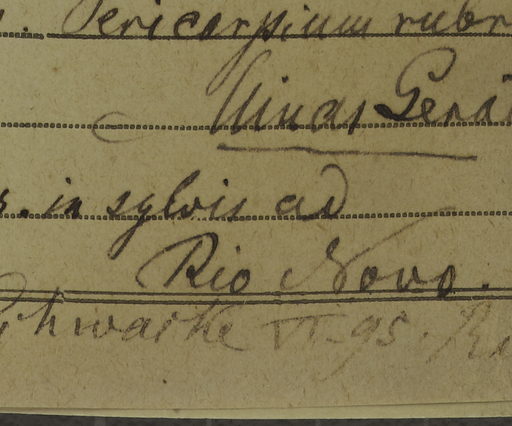 . Pericarpium rubr
Minas Gera
s. in sylvis ad
Rio Novo.
Schwacke VI. 95.